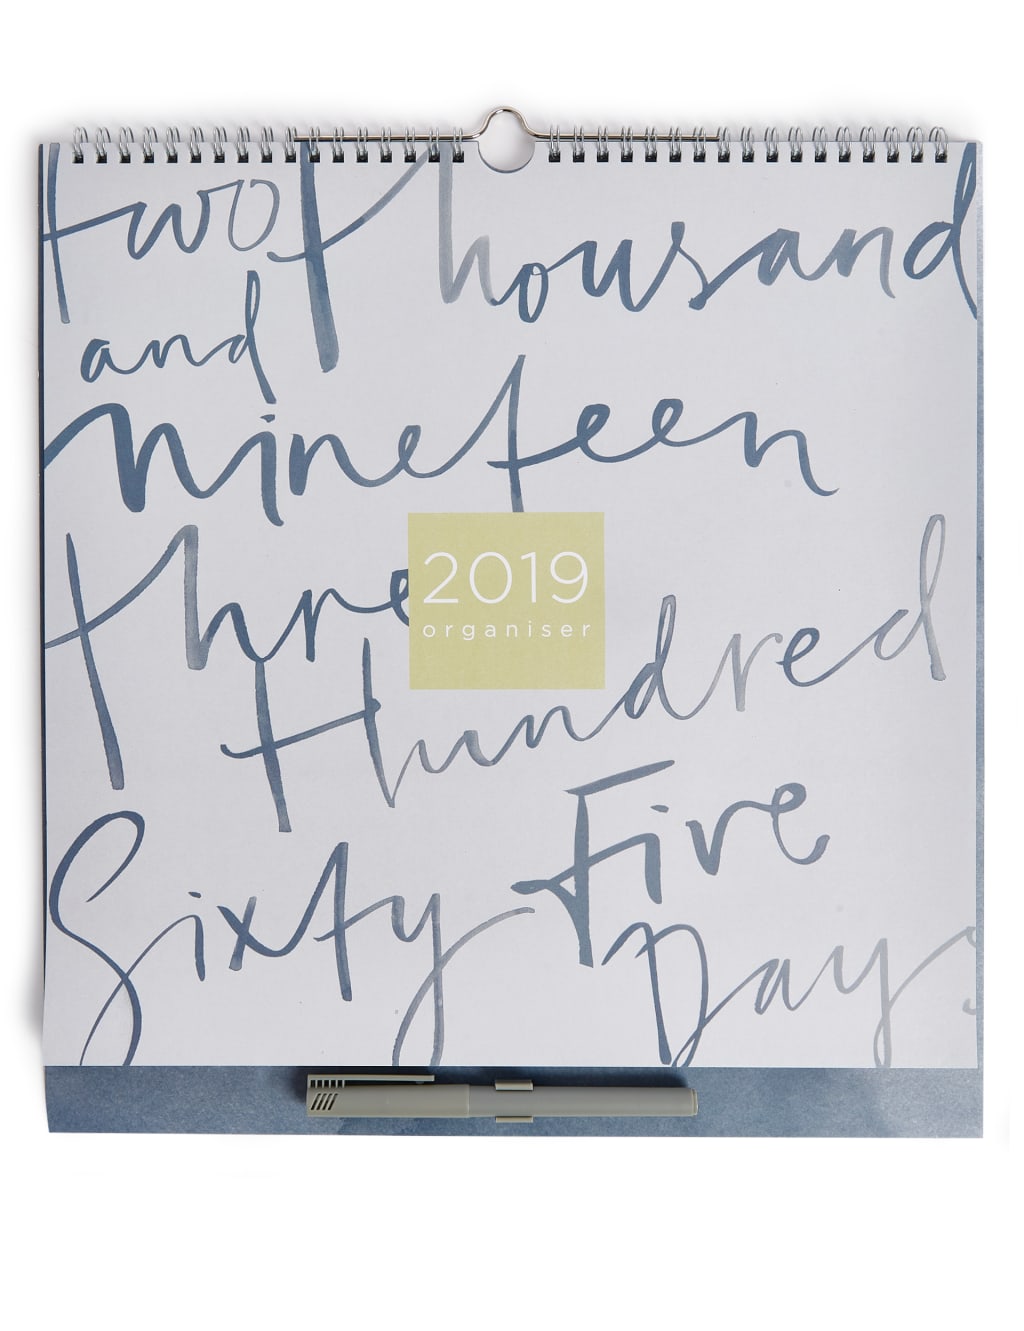 two Thousand
and
nineteen
three
2019
organiser
Hundred
Sixty Five
Days